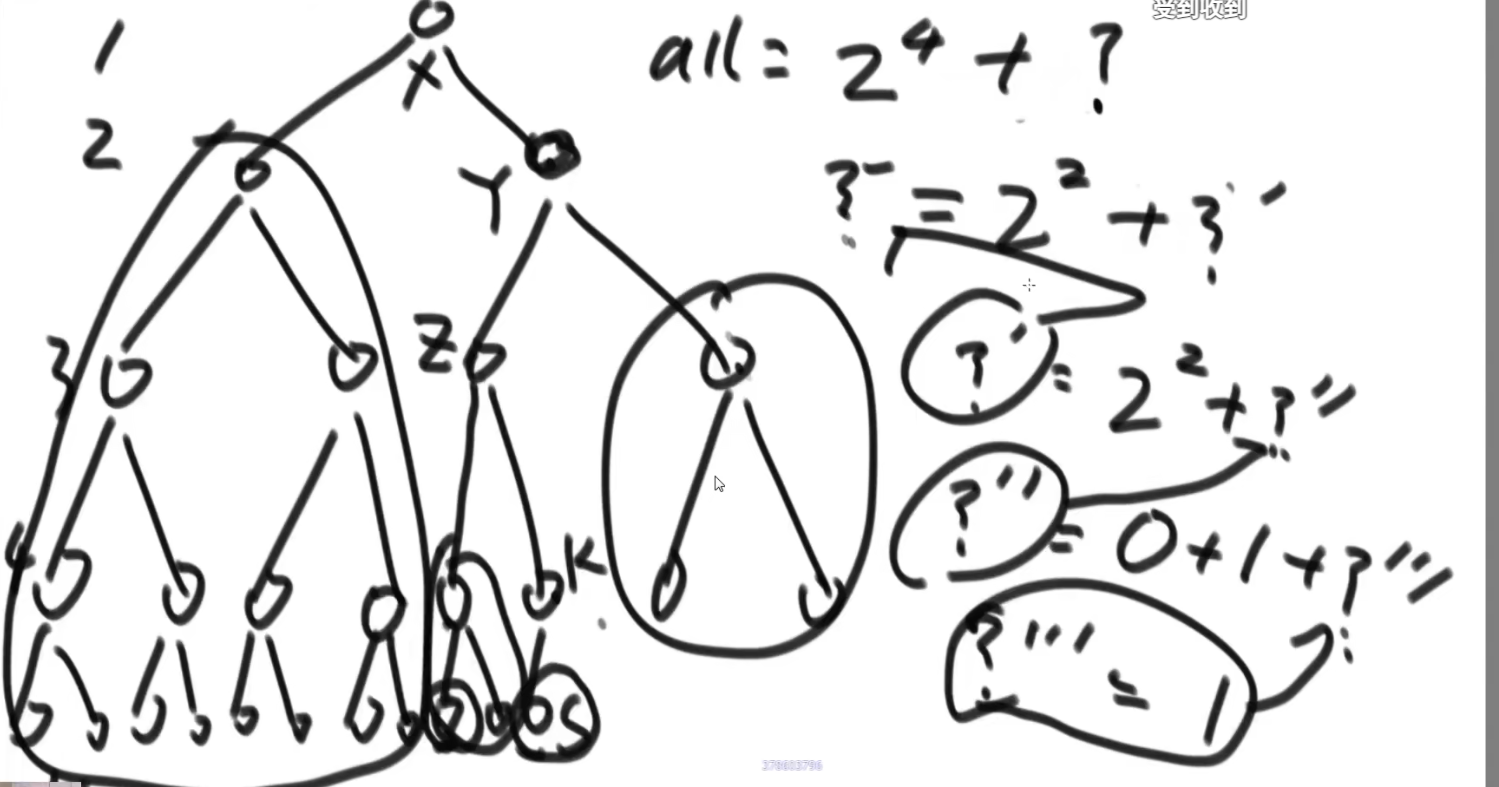 受到收到
1
2
3
4
X
Y
Z
K
S
all = 2^4 + ?
? = 2^2 + ?'
?' = 2^2 + ?''
?'' = 0 + 1 + ?'''
?''' = 1
378603796